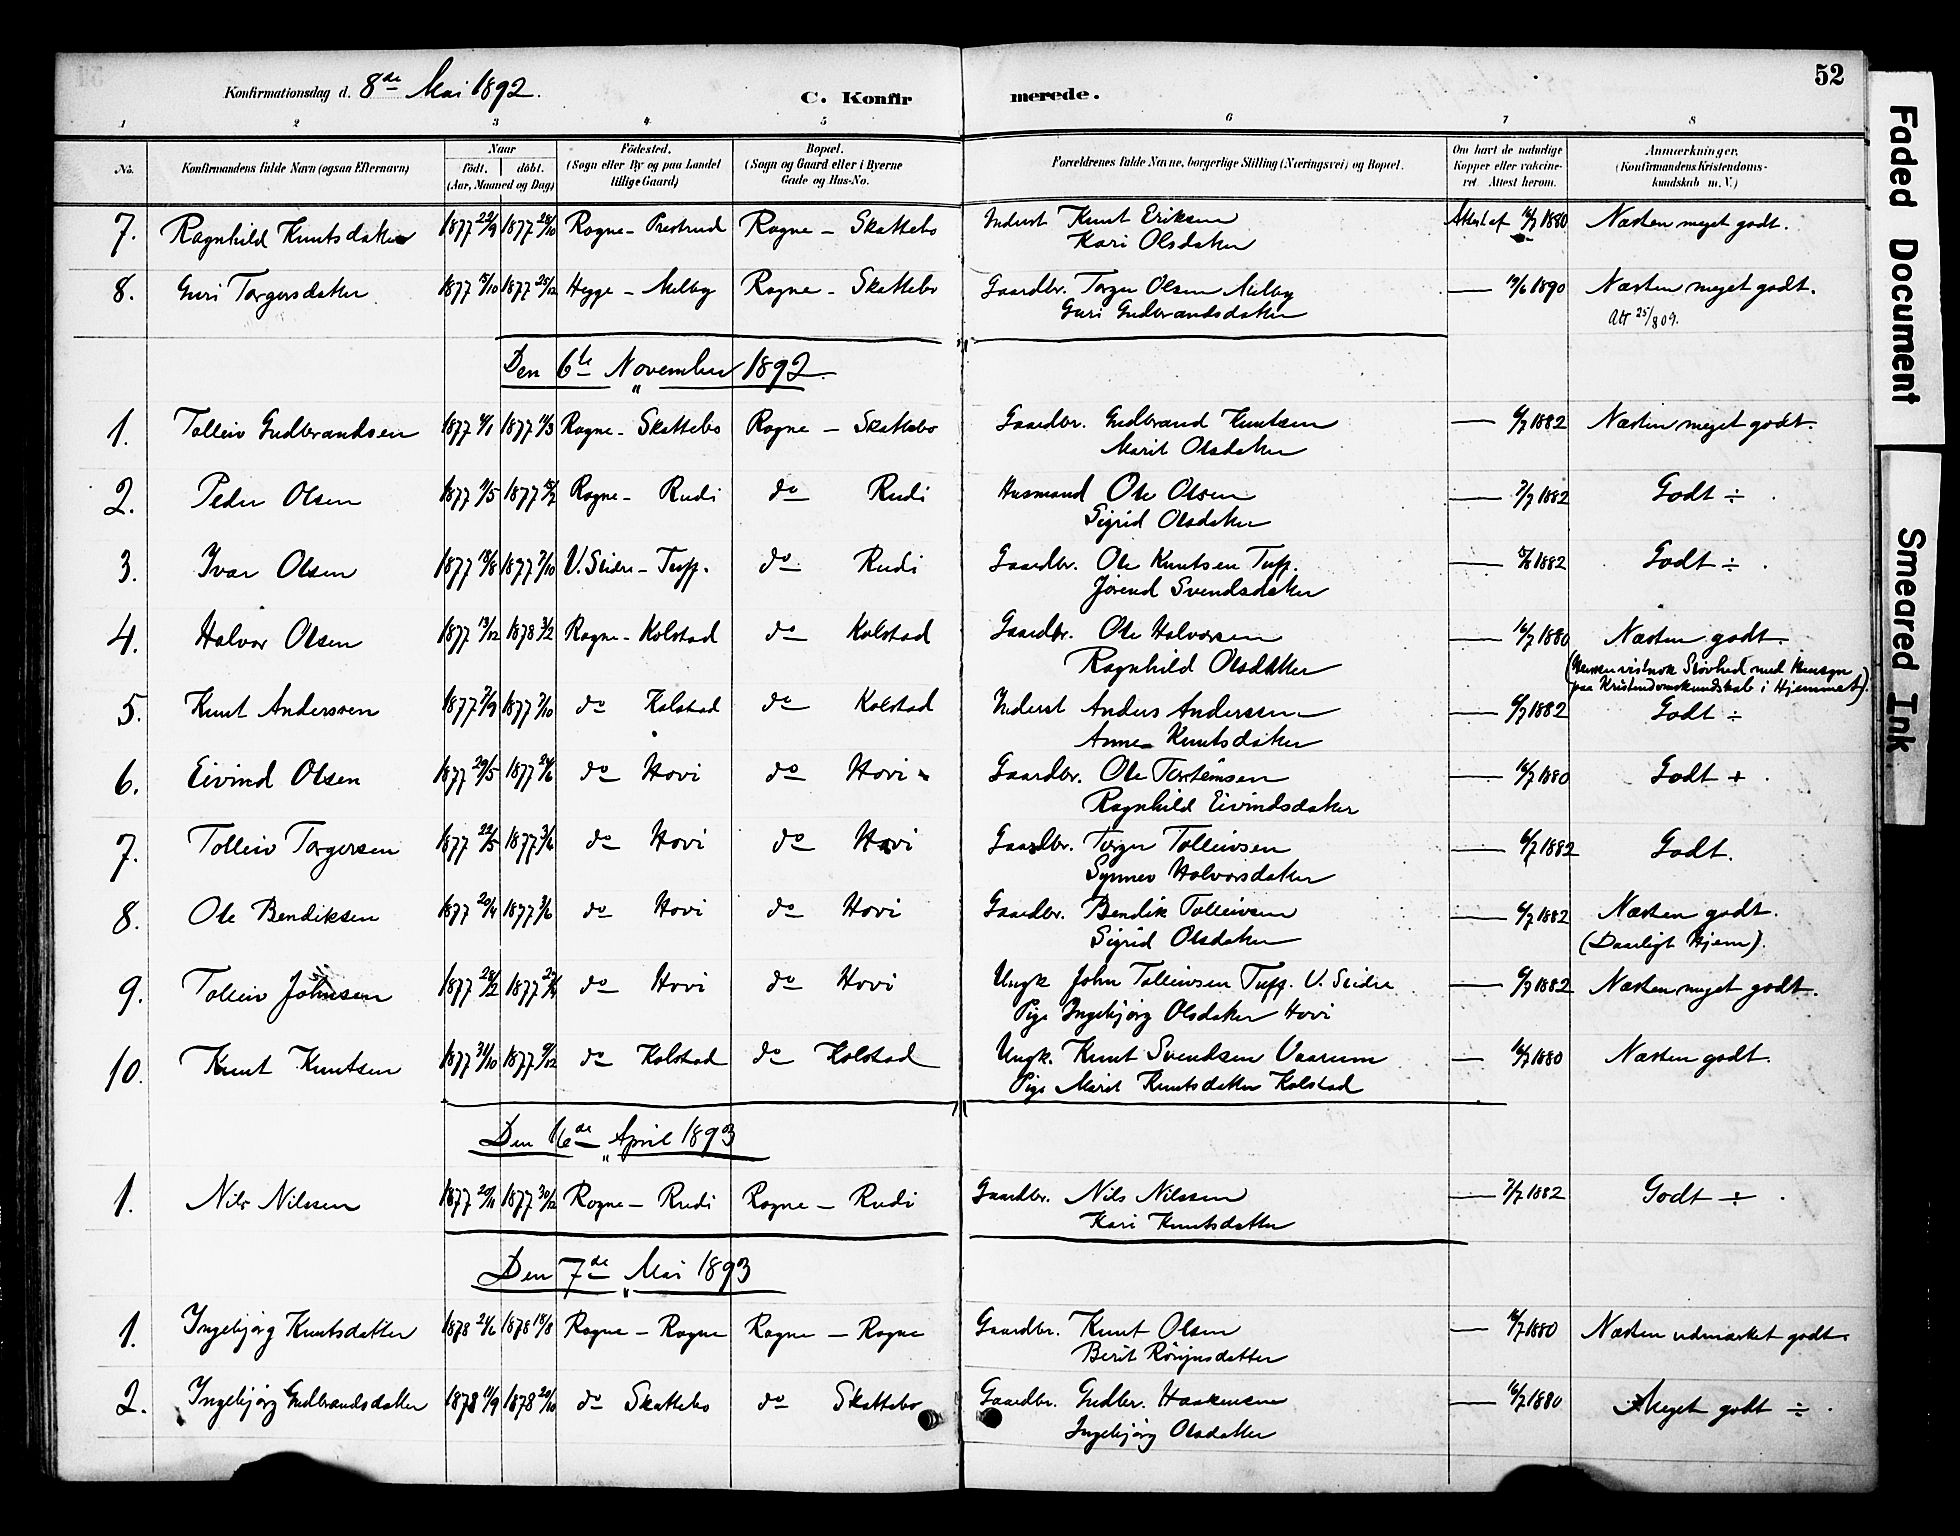 Konfirmationsdag d. 8de Mai 1892.
C. Konfirmerede.
52
1 2 3 4 5 6 7 8
No. Konfirmandens fulde Navn (ogsaa Efternavn) Naar født. døbt. (Aar, Maaned og Dag) Fødested. (Sogn eller By og paa Landet tillige Gaard) Bopæl. (Sogn og Gaard eller i Byerne Gade og Hus-No. Forældrenes fulde Navne, borgerlige Stilling (Næringsvei) og Bopæl. Om havt de naturlige Kopper eller vakcineret. Attest herom. Anmærkninger. (Konfirmandens Kristendomskundskab m. V.)
7. Ragnhild Knutsdatter 1877 22/9 1877 28/10 Rogne - Prestrud Rogne - Skattebo Inderst Knut Eriksen Attest af 16/7 1880 Næsten meget godt.
Kari Olsdatter
8. Guri Torgersdatter 1877 15/10 1877 26/12 Hegge - Melby Rogne - Skattebo Gaardbr. Torger Olsen Melby — 19/6 1890 Næsten meget godt.
Guri Gudbrandsdatter Att 25/8 09.
Den 6te November 1892.
1. Tolleiv Gudbrandsen 1877 1877 11/3 Rogne - Skattebo Rogne - Skattebo Gaardbr. Gudbrand Knutsen — 6/7 1882 Næsten meget godt.
Marit Olsdatter
2. Peder Olsen 1877 1877 Rogne - Rudi do Rudi Husmand Ole Olsen — 7/7 1882 Godt ÷ .
Sigrid Olsdatter
3. Ivar Olsen 1877 18/8 1877 7/10 V. Slidre - Tuff. do Rudi Gaardbr. Ole Knutsen Tuff. — 1882 Godt ÷ .
Jørend Svendsdatter
4. Halvor Olsen 1877 13/12 1878 3/2 Rogne - Kolstad do Kolstad Gaardbr. Ole Halvorsen — 16/7 1880 Næsten godt.
Ragnhild Olsdatter vistnok Sløvhed med Hensyn
paa Kristendomskundskab i Hjemmet).
5. Knut Anderssen 1877 7/9 1877 7/10 do Kolstad do Kolstad Inderst Anders Anderssen — 6/7 1882 Godt ÷
Anne Knutsdatter
6. Eivind Olsen 1877 29/5 1877 24/6 do Hovi do Hovi Gaardbr. Ole Torsteinsen — 16/7 1880 Godt + .
Ragnhild Eivindsdatter
7. Tolleiv Torgersen 1877 22/5 1877 3/6 do Hovi do Hovi Gaardbr. Torger Tolleivsen — 6/7 1882 Godt.
Synnev Halvorsdatter
8. Ole Bendiksen 1877 20/4 1877 3/6 do Hovi do Hovi Gaardbr. Bendik Tolleivsen — 6/7 1882 Næsten godt.
Sigrid Olsdatter (Daarligt Hjem).
9. Tolleiv Johnsen 1877 28/2 1877 22/4 do Hovi do Hovi Ungk John Tolleivsen Tuff. V. Slidre — 6/7 1882 Næsten meget godt.
Pige Ingebjørg Olsdatter Hovi
10. Knut Knutsen 1877 31/10 1877 9/12 do Kolstad do Kolstad Ungk. Knut Svendsen Vaarum — 16/7 1880 Næsten godt.
Pige Marit Knutsdatter Kolstad
Den 16de April 1893
1. Nils Nilssen 1877 20/11 1877 30/12 Rogne - Rudi Rogne - Rudi Gaardbr. Nils Nilssen — 7/7 1882 Godt ÷ .
Kari Knutsdatter
Den 7de Mai 1893
1. Ingebjørg Knutsdatter 1878 24/6 1878 18/8 Rogne - Rogne Rogne - Rogne Gaardbr. Knut Olsen — 16/7 1880 Næsten udmærket godt.
Berit
2. Ingebjørg Gudbrandsdatter 1878 11/9 1878 20/10 do Skattebo do Skattebo Gaardbr. Gudbr. Haakensen — 16/7 1880 Meget godt ÷ .
Ingebjørg Olsdatter
Faded Document
Smeared Ink